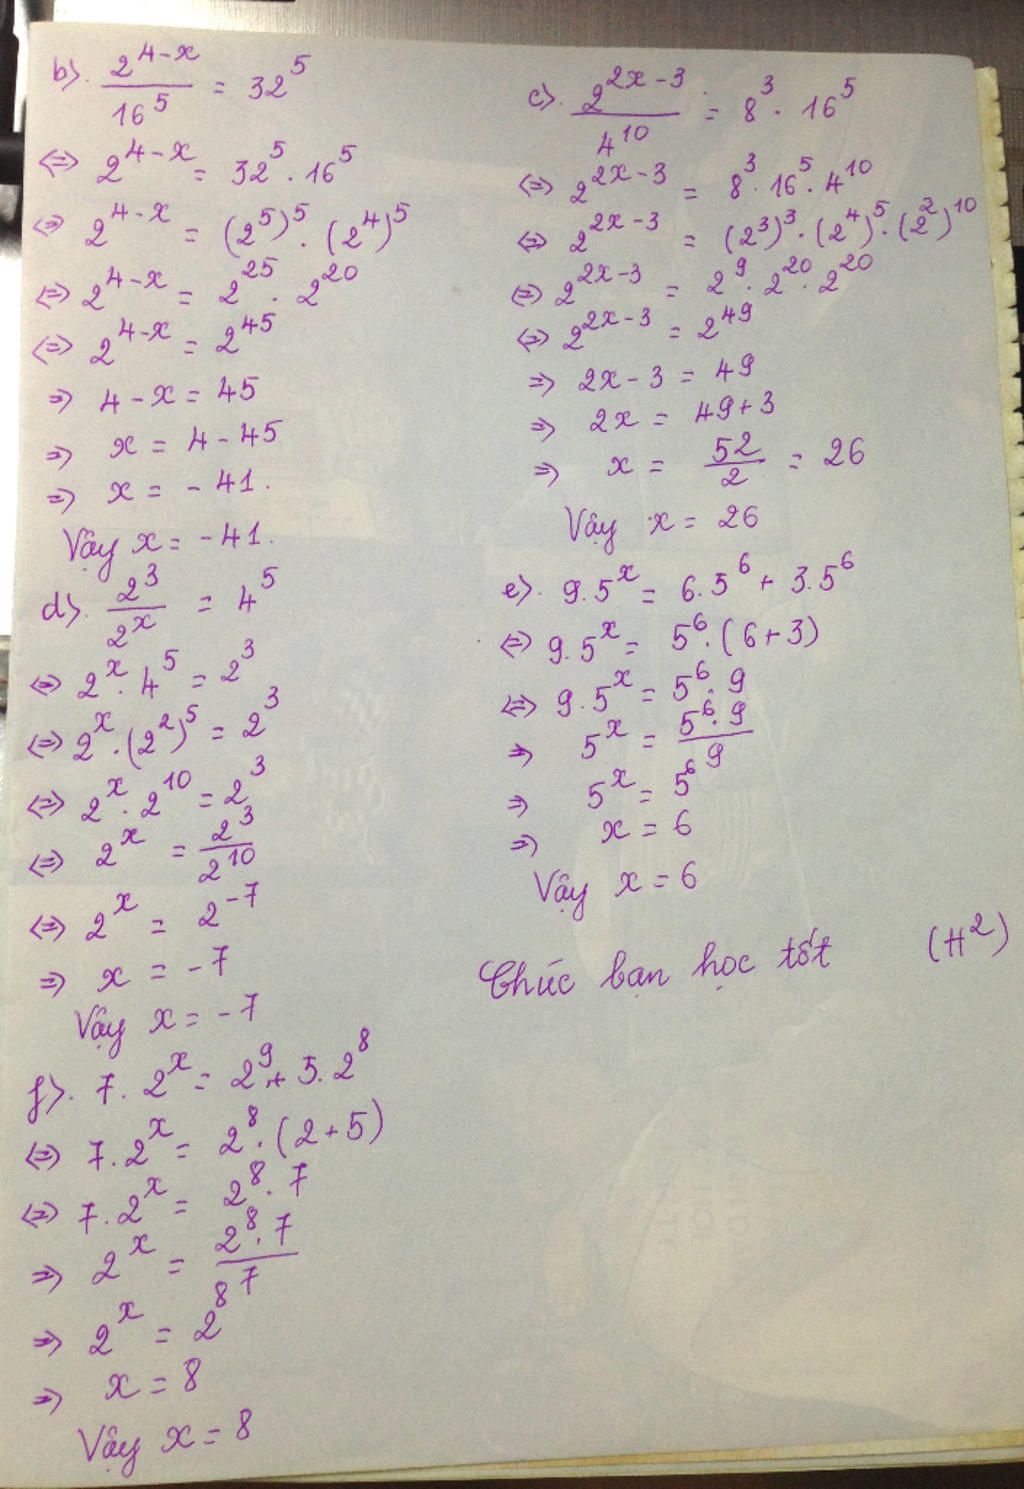 b). \frac{2^{4-x}}{16^5} = 32^5
⇔ 2^{4-x} = 32^5 . 16^5
⇔ 2^{4-x} = (2^5)^5 . (2^4)^5
⇔ 2^{4-x} = 2^{25} . 2^{20}
⇔ 2^{4-x} = 2^{45}
⇒ 4-x = 45
⇒ x = 4-45
⇒ x = -41.
Vậy x = -41.
d). \frac{2^3}{2^x} = 4^5
⇔ 2^x . 4^5 = 2^3
⇔ 2^x . (2^2)^5 = 2^3
⇔ 2^x . 2^{10} = 2^3
⇔ 2^x = \frac{2^3}{2^{10}}
⇔ 2^x = 2^{-7}
⇒ x = -7
Vậy x = -7
f). 7. 2^x = 2^9 + 5. 2^8
⇔ 7. 2^x = 2^8 . (2+5)
⇔ 7. 2^x = 2^8 . 7
⇒ 2^x = \frac{2^8 . 7}{7}
⇒ 2^x = 2^8
⇒ x = 8
Vậy x = 8
c). \frac{2^{2x-3}}{4^{10}} = 8^3 . 16^5
⇔ 2^{2x-3} = 8^3 . 16^5 . 4^{10}
⇔ 2^{2x-3} = (2^3)^3 . (2^4)^5 . (2^2)^{10}
⇔ 2^{2x-3} = 2^9 . 2^{20} . 2^{20}
⇔ 2^{2x-3} = 2^{49}
⇒ 2x-3 = 49
⇒ 2x = 49+3
⇒ x = \frac{52}{2} = 26
Vậy x = 26
e). 9.5^x = 6.5^6 + 3.5^6
⇔ 9.5^x = 5^6 . (6+3)
⇔ 9.5^x = 5^6 . 9
⇒ 5^x = \frac{5^6 . 9}{9}
⇒ 5^x = 5^6
⇒ x = 6
Vậy x = 6
Chúc bạn học tốt (H^2)